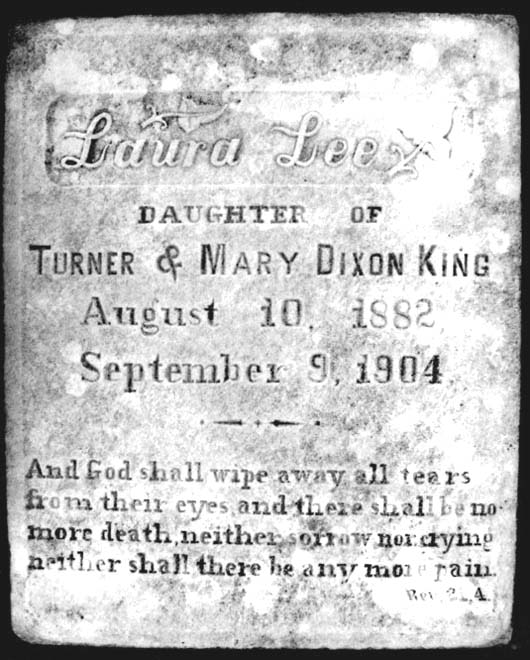 Laura Lee
DAUGHTER OF
TURNER & MARY DIXON KING
August 10, 1882
September 9, 1904
And God shall wipe away all tears
from their eyes, and there shall be no
more death, neither sorrow nor crying
neither shall there be any more pain.
Rev. 21,4.